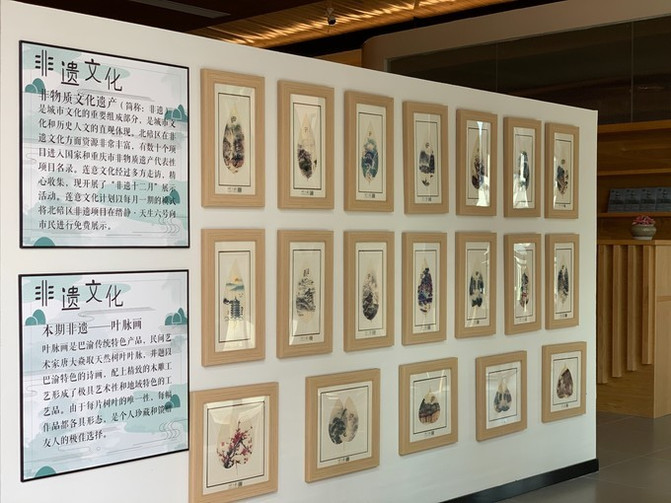 非遗文化
非物质文化遗产（简称：非遗）
是城市文化的重要组成部分，是城市文
化和历史人文的直观体现，北碚区在非
遗文化方面资源非常丰富，有数十个项
目进入国家和重庆市非物质遗产代表性
项目名录。莲意文化经过多方走访，精
心收集，现开展了“非遗十二月”展示
活动，莲意文化计划以每月一期的模式
将北碚区非遗项目在缙静·天生六号向
市民进行免费展示。
非遗文化
本期非遗——叶脉画
叶脉画是巴渝传统特色产品，民间艺
术家唐大焱取天然树叶叶脉，并题以
巴渝特色的诗画，配上精致的木雕工
艺形成了极具艺术性和地域特色的工
艺品。由于每片树叶的唯一性，每幅
作品都各具形态，是个人珍藏和馈赠
友人的极佳选择。